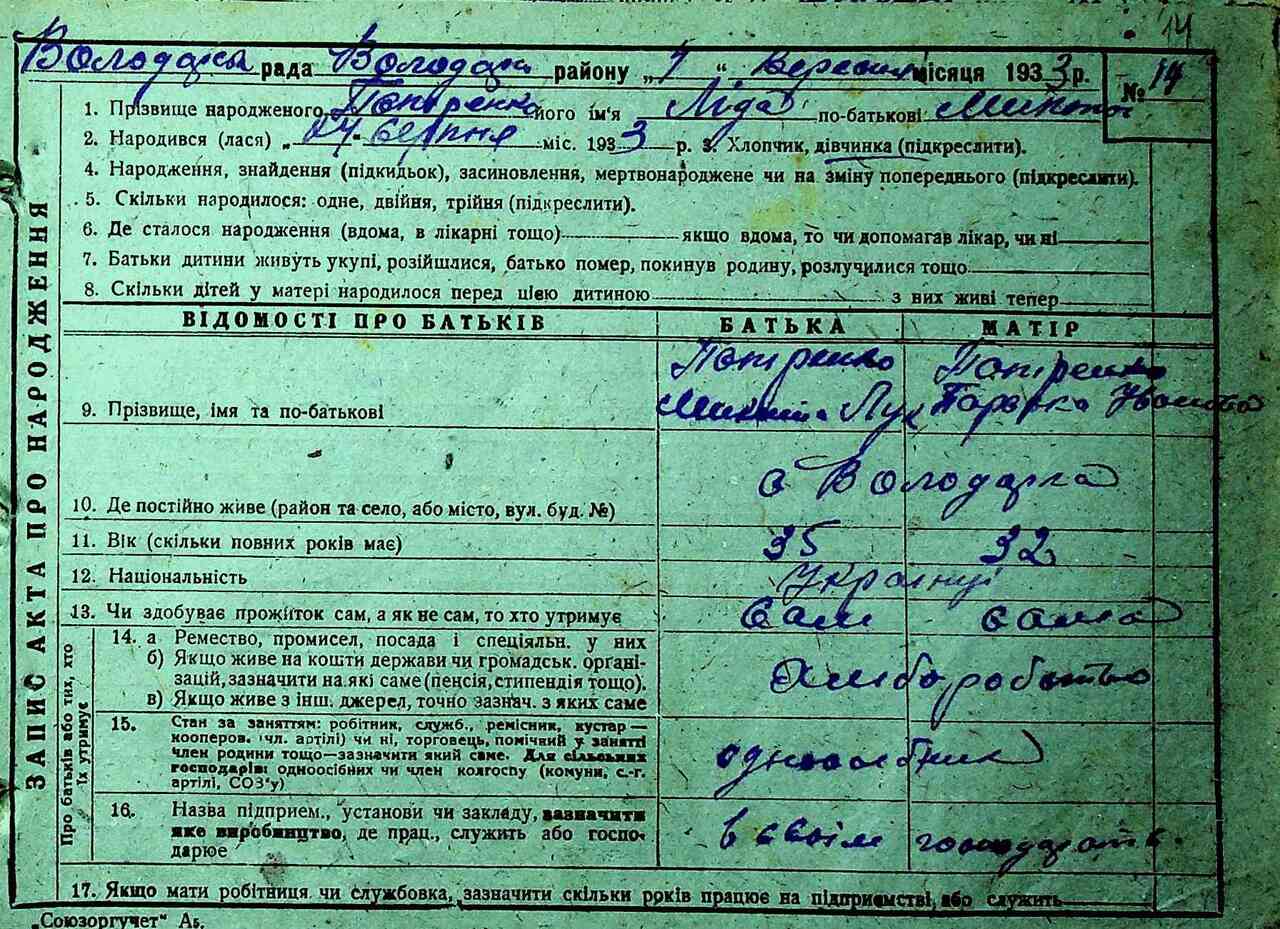 14
Володарськ рада Володарськ району „ “ вересня місяця 1933 р. № 14
1. Прізвище народженого його ім'я Ліда по-батькові
2. Народився (лася) „24“ серпня міс. 1933 р. 3. Хлопчик, дівчинка (підкреслити).
4. Народження, знайдення (підкидьок), засиновлення, мертвонароджене чи на зміну попереднього (підкреслити).
5. Скільки народилося: одне, двійня, трійня (підкреслити).
6. Де сталося народження (вдома, в лікарні тощо) якщо вдома, то чи допомагав лікар, чи ні
7. Батьки дитини живуть укупі, розійшлися, батько помер, покинув родину, розлучилися тощо
8. Скільки дітей у матері народилося перед цією дитиною з них живі тепер
ЗАПИС АКТА ПРО НАРОДЖЕННЯ
ВІДОМОСТІ ПРО БАТЬКІВ БАТЬКА МАТІР
9. Прізвище, імя та по-батькові
10. Де постійно живе (район та село, або місто, вул. буд. №) с Володарка
11. Вік (скільки повних років має) 35 32
12. Національність Українці
13. Чи здобуває прожиток сам, а як не сам, то хто утримує сам сама
Про батьків або тих, хто
їх утримує
14. а Ремество, промисел, посада і спеціяльн. у них
б) Якщо живе на кошти держави чи громадськ. орґані-
зацій, зазначити на які саме (пенсія, стипендія тощо).
в) Якщо живе з інш. джерел, точно зазнач. з яких саме
15. Стан за заняттям: робітник, служб., ремісник, кустар—
кооперов. чл. артілі) чи ні, торговець, помічний у занятті
член родини тощо—зазначити який саме. Для сільських
господарів: одноосібних чи член колгоспу (комуни, с.-г.
артілі, СОЗ'у)
одноосібник
16. Назва підприєм., установи чи закладу, вазначити
яке виробництво, де прац., служить або госпо-
дарює
в своїм господарстві
17. Якщо мати робітниця чи службовка, зазначити скільки років працює на підприємстві, або служить
„Союзоргучет“ А5.